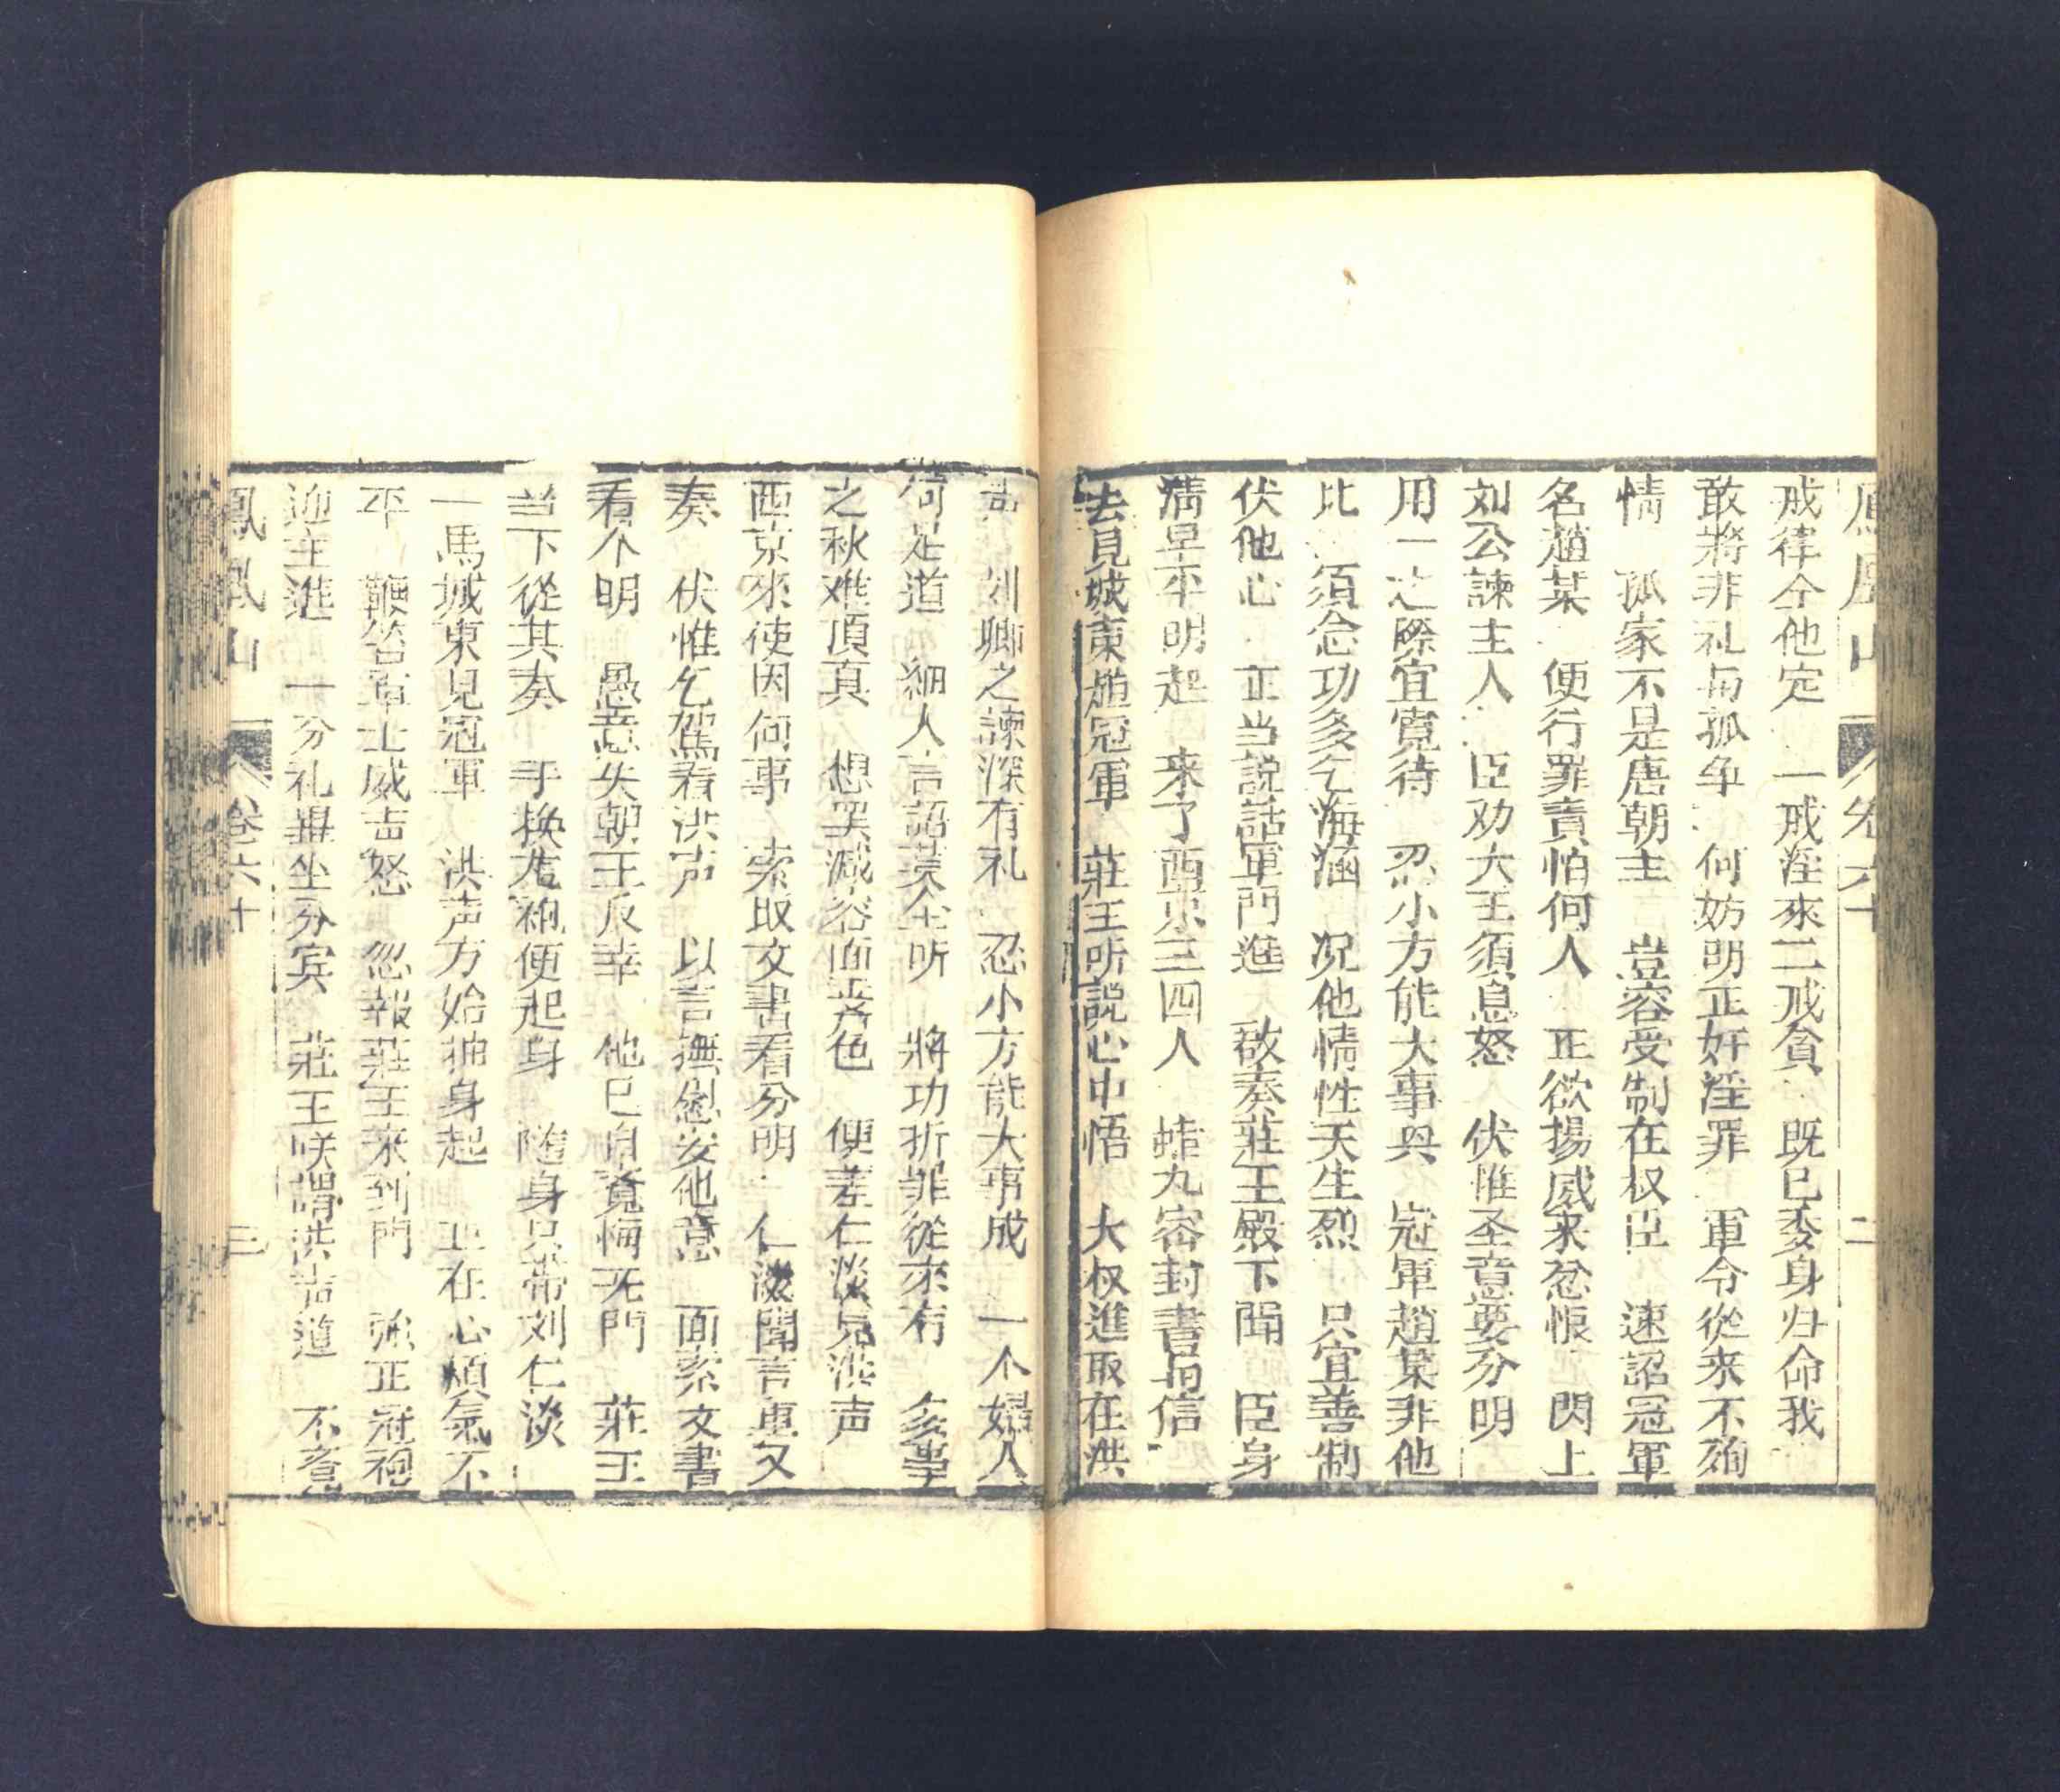 鳳凰山 卷六十 二
戒律全他定 一戒淫來二戒貪 既已委身归命我
敢將非礼与孤争 何妨明正奸淫罪 軍令從来不殉
情 孤家不是唐朝主 豈容受制在权臣 速詔冠軍
名趙某 便行罪責怕何人 正欲揚威来忿恨 閃上
刘公諫主人 臣劝大王須息怒 伏惟圣意要分明
用一之際宜寬待 忍小方能大事興 冠軍趙某非他
比 須念功多乞海涵 况他情性天生烈 只宜善制
伏他心 正当説話軍門進 啟奏莊王殿下聞 臣身
清早平明起 来了西京三四人 蜡丸密封書与信
去見城東趙冠軍 莊王听説心中悟 大权進取在洪
声 刘卿之諫深有礼 忍小方能大事成 一个婦人
何足道 細人言語莫全听 將功折罪從來有 多事
之秋难頂真 想罢减容面霁色 便差仁淡見洪声
西京來使因何事 索取文書看分明 仁淡聞言重又
奏 伏惟乞駕看洪声 以言撫慰安他意 面索文書
看个明 愚意失朝王反幸 他已自覚悔无門 莊王
当下從其奏 手换龙袍便起身 随身只帶刘仁淡
一馬城東見冠軍 洪声方始抽身起 正在心煩氣不
平 鞭笞軍士威声怒 忽報莊王来到門 強正冠袍
迎主進 一分礼畢坐分宾 莊王咲謂洪声道 不意
鳳凰山 卷六十 三